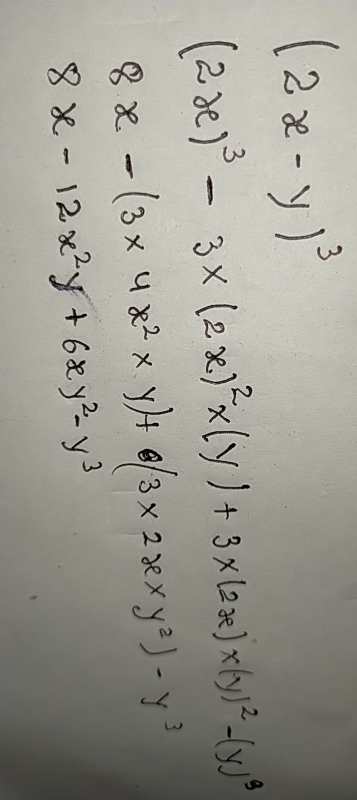 (2x-y)³
(2x)³ - 3×(2x)²×(y) + 3×(2x)×(y)² -(y)³
8x - (3×4x²×y)+(3×2x×y²) - y³
8x - 12x²y + 6xy² - y³